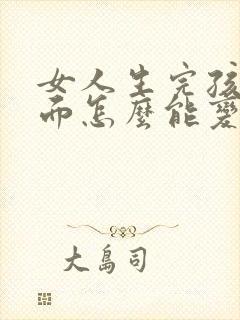 女人生完孩
而怎麼能變
大島司